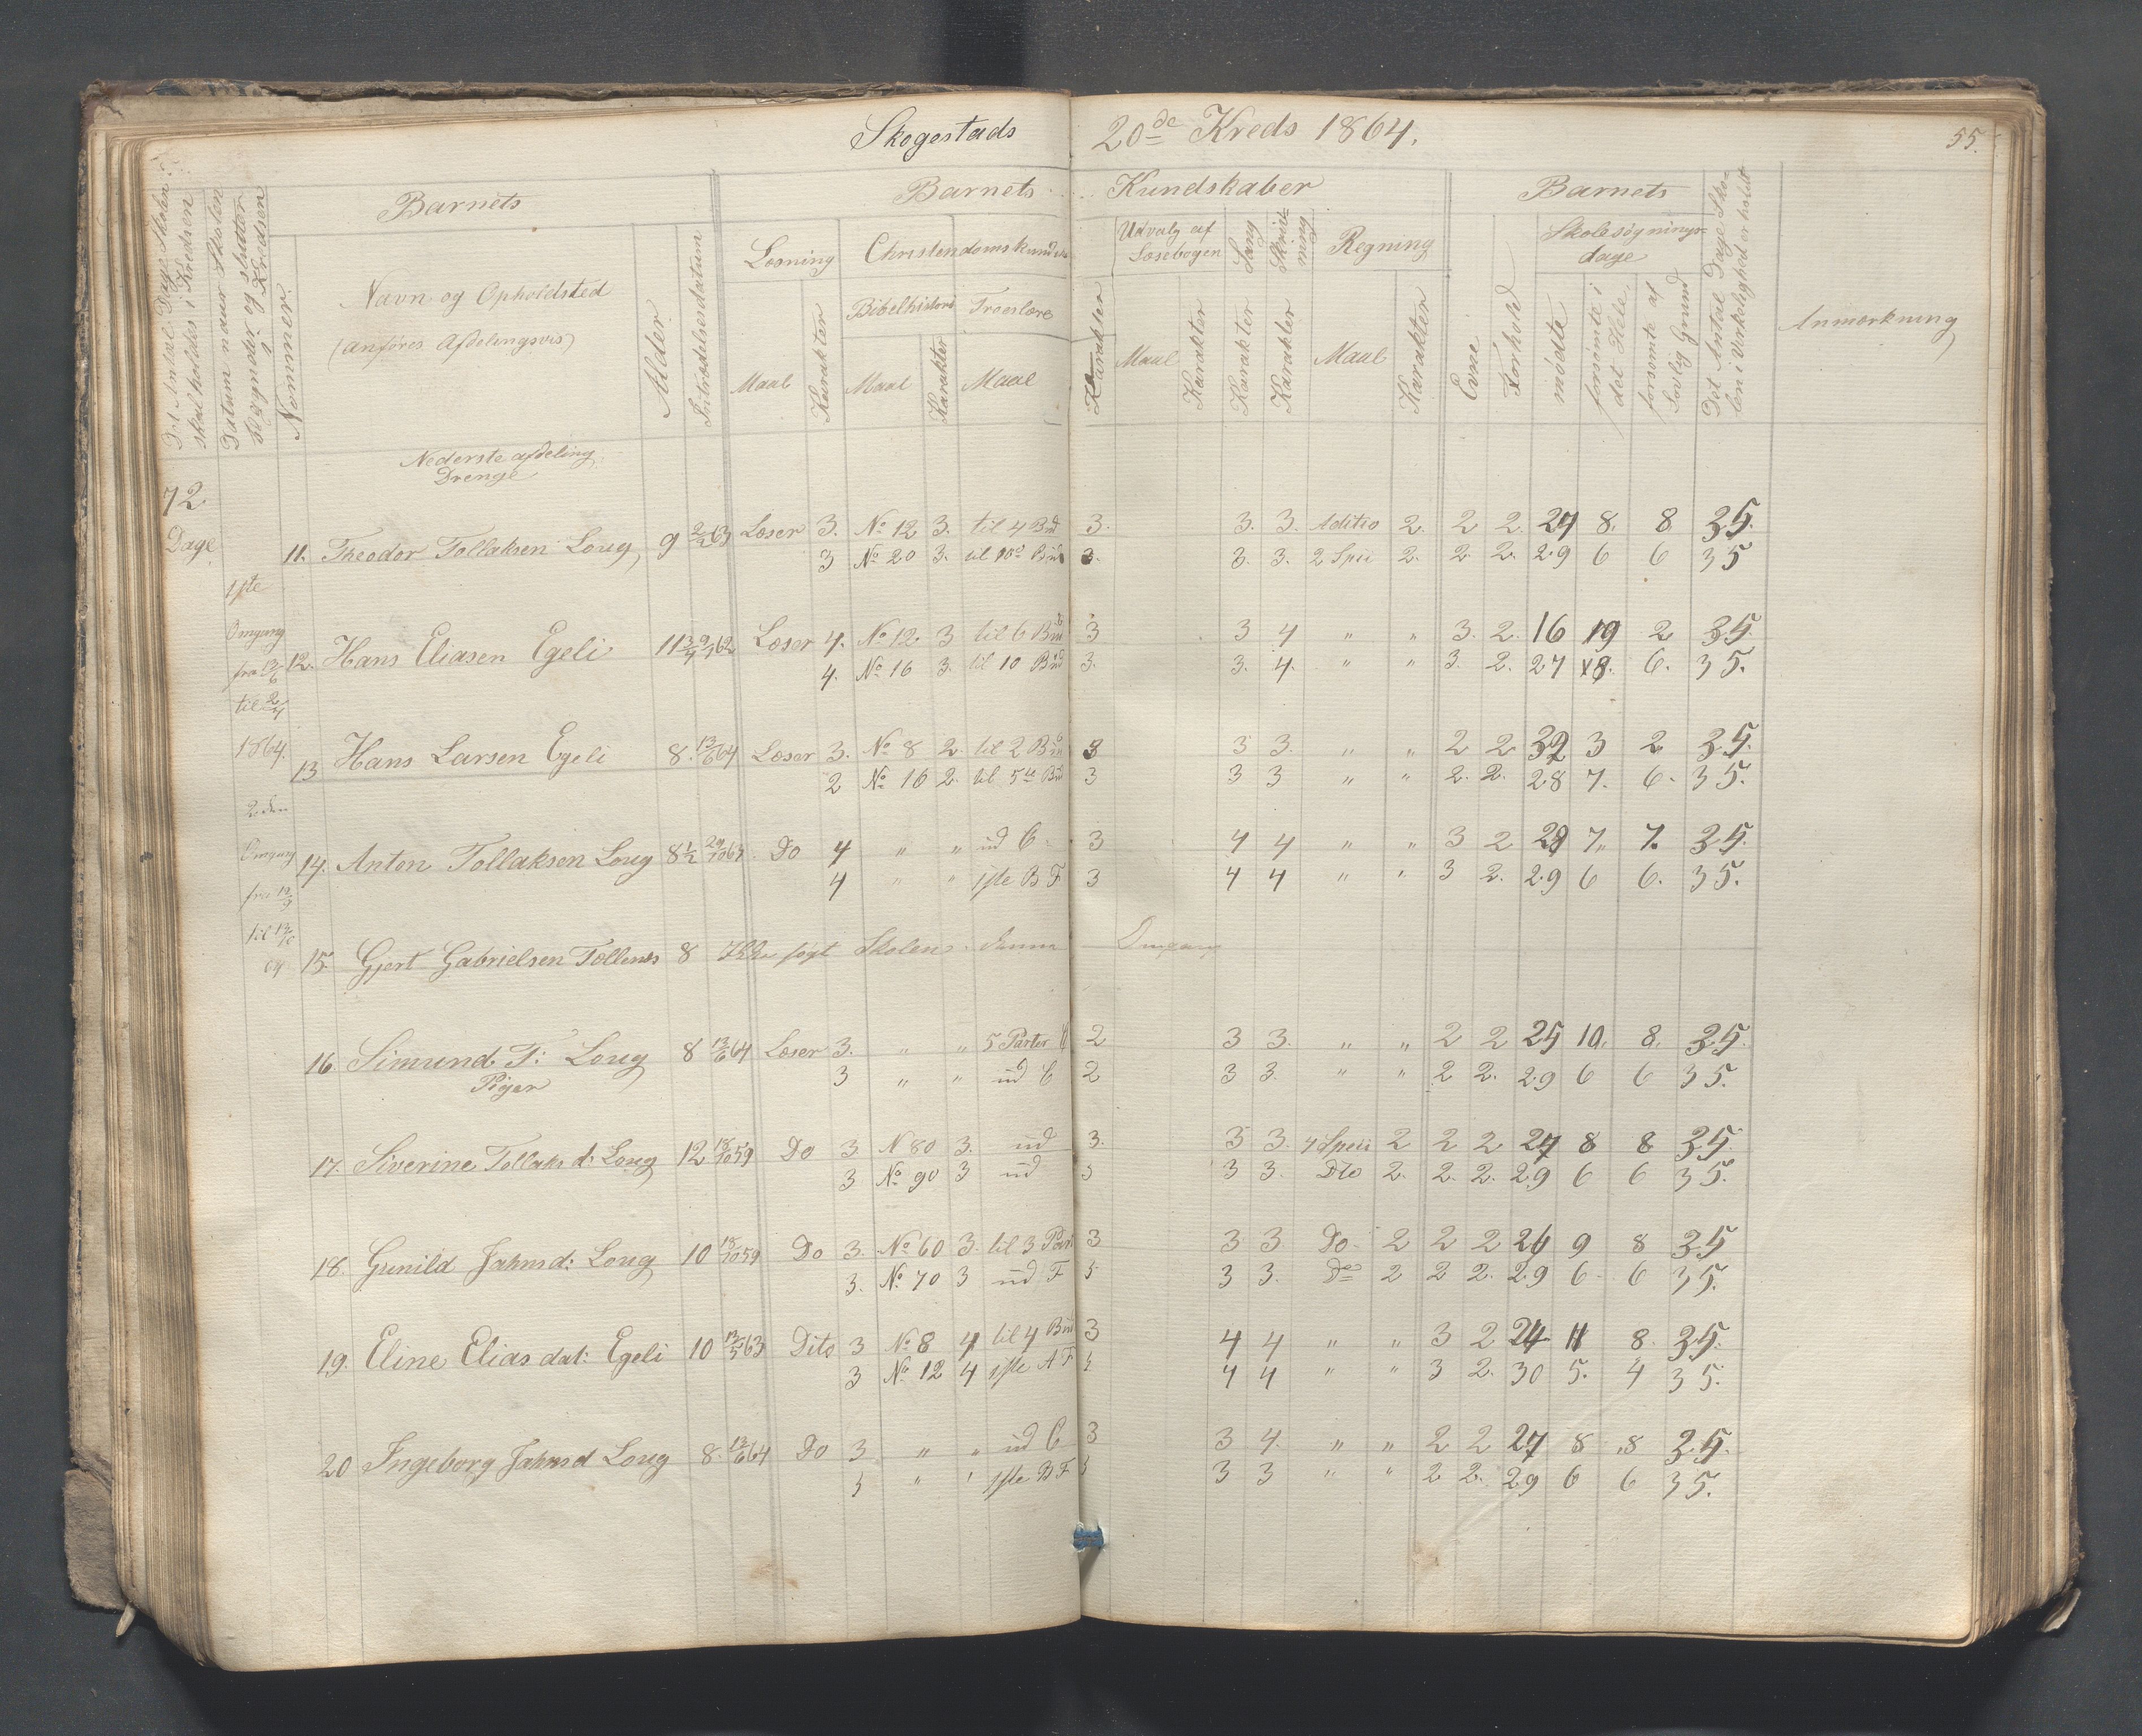 Skogestads 20de Kreds 1864. 55.
Det Antal Dage Skolen skal holdes i Kredsen
Datum naar Skolen begynder og slutter i Kredsen
Nommer.
Barnets
Navn og Opholdsted
(anføres Afdelingsvis)
Alder
Intrædelsesdatum
Barnets Kundskaber
Læsning
Maal
Karakter
Christendomskundsk
Bibelhistori
Maal
Karakter
Troeslære
Maal
Karakter
Udvalg af Læsebogen
Maal
Karakter
Sang
Karakter
Skrivning
Karakter
Regning
Maal
Karakter
Barnets
Evne
Forhold
Skolesøgningsdage
mødte
forsømte i det Hele
forsømte af Lovlig Grund
Det Antal Dage Skolen i Virkelighed er holdt
Anmærkning
Nederste afdeling
Drenge
72 Dage
1ste Omgang fra 13/6 til 2/7 1864.
2den Omgang fra 19/9 til 64
11. Theodor Tollaksen Loug 9 63 Læser 3. No 12 3. til 4 Bud 3. 3. 3. Aditio 2. 2 2. 27 8. 8 35.
3 No 20 3. til 10de Bud 3. 3. 3. 2 Spec 2. 2. 2. 29 6 6 35
12. Hans Eliasen Egeli 11 62 Læser 4. No 12 3 til 6 Bud 3 3 4 " " 3. 2. 16 19 2 35.
4. No 16 3. til 10 Bud 3. 3. 4. " " 3. 2. 27 8. 6. 35.
13 Hans Larsen Egeli 8. 13/6 64 Læser 3. No 8 2. til 2 Bud 3 3 3. " " 2 2 32 3 2 35.
2 No 16 2. til 5te Bud 3 3 3 " " 2. 2. 28 7. 6. 35.
14. Anton Tollaksen Loug 8 1/2 29/10 63 Do 4 " " ud C 3 4 4 " " 3 2 28 7. 7. 35.
4 " " 1ste B F 3 4 4 " " 3 2. 29 6 6. 35.
15. Gjert Gabrielsen Tollenes 8 Ikke søgt Skolen denne Omgang
16. Simund T: Loug 8 13/6 64 Læser 3. " " 5 Parter 2 3 3. " " 2 2 25 10. 8. 35.
3 " " ud C 2 3 3. " " 2 2. 29 6 6 35.
Piger
17. Siverine Tollaks d: Loug 12 18/10 59 Do 3 N 80 3. ud 3. 3 3. 4 Speci 2 2 2 27 8 8 35.
3 No 90 3 ud 3 3 3. Dto 2. 2. 2. 29 6 6 35.
18. Gunild Jahns d: Loug 10 18/10 59 Do 3. No 60 3. til 3 Part 3 3 3 Do 2 2 2 26 9 8 35
3. No 70 3 ud F 3 3 3. Do 2 2 2. 29 6 6 35.
19. Eline Elias dat: Egeli 10 63 Dito 3 No 8 4 til 4 Bud 3 4 4 " " 3 2 24 11 8. 35.
3 No 12 4 1ste A F 3 4 4 " " 3 2. 30 5. 4 35.
20 Ingeborg Jahns d Loug 8. 13/6 64 Do 3 " " ud C 3 3 4. " " 2 2 27 8 8 35.
3 " " 1ste B F 3 3 3 " " 2 2. 29 6 6 35.